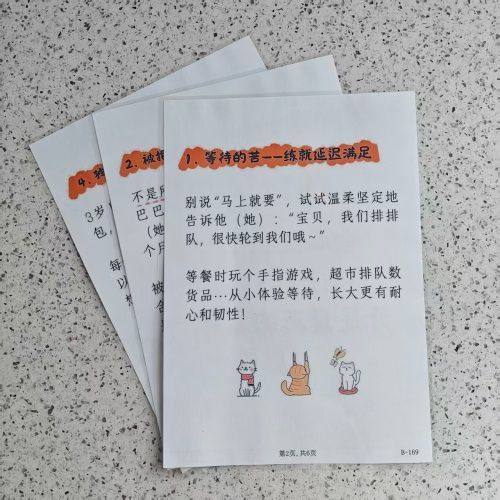 1、等待的苦--练就延迟满足
别说“马上就要”，试试温柔坚定地
告诉他（她）：“宝贝，我们排排
队，很快轮到我们哦~”
等餐时玩个手指游戏，超市排队数
货品…从小体验等待，长大更有耐
心和韧性！
第2页，共6页
B-169
2、被拒
不是所
巴巴
（她
个月
被
4、
3岁
包
每
以